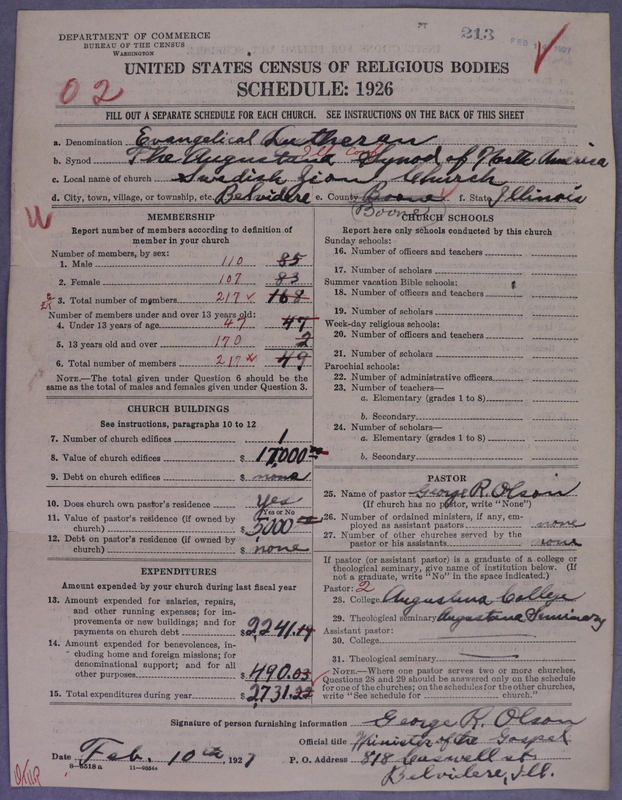 213
FEB
DEPARTMENT OF COMMERCE
BUREAU OF THE CENSUS
WASHINGTON
UNITED STATES CENSUS OF RELIGIOUS BODIES
SCHEDULE: 1926
02
FILL OUT A SEPARATE SCHEDULE FOR EACH CHURCH. SEE INSTRUCTIONS ON THE BACK OF THIS SHEET
a. Denomination Evangelical Lutheran
b. Synod The Augustana Synod of North America
c. Local name of church Swedish Zion Church
d. City, town, village, or township, etc. Belvidere e. County Boone f. State Illinois
(Boone)
MEMBERSHIP
Report number of members according to definition of
member in your church
Number of members, by sex:
1. Male 110 85
2. Female 107 83
3. Total number of members 217 168
Number of members under and over 13 years old:
4. Under 13 years of age 47 47
5. 13 years old and over 170 2
6. Total number of members 217 49
NOTE.—The total given under Question 6 should be the
same as the total of males and females given under Question 3.
CHURCH BUILDINGS
See instructions, paragraphs 10 to 12
7. Number of church edifices 1
8. Value of church edifices $ 17,000.00
9. Debt on church edifices $ none
10. Does church own pastor's residence? yes
(Yes or No)
11. Value of pastor's residence (if owned by
church) $ 5000
12. Debt on pastor's residence (if owned by
church) $ none
EXPENDITURES
Amount expended by your church during last fiscal year
13. Amount expended for salaries, repairs,
and other running expenses; for im-
provements or new buildings; and for
payments on church debt $ 2241.19
14. Amount expended for benevolences, in-
cluding home and foreign missions; for
denominational support; and for all
other purposes $ 490.03
15. Total expenditures during year $ 2731.22
CHURCH SCHOOLS
Report here only schools conducted by this church
Sunday schools:
16. Number of officers and teachers
17. Number of scholars
Summer vacation Bible schools:
18. Number of officers and teachers
19. Number of scholars
Week-day religious schools:
20. Number of officers and teachers
21. Number of scholars
Parochial schools:
22. Number of administrative officers
23. Number of teachers—
a. Elementary (grades 1 to 8)
b. Secondary
24. Number of scholars—
a. Elementary (grades 1 to 8)
b. Secondary
PASTOR
25. Name of pastor George R. Olson
(If church has no pastor, write "None")
26. Number of ordained ministers, if any, em-
ployed as assistant pastors none
27. Number of other churches served by the
pastor or his assistants none
If pastor (or assistant pastor) is a graduate of a college or
theological seminary, give name of institution below. (If
not a graduate, write "No" in the space indicated.)
Pastor: 2
28. College Augustana College
29. Theological seminary Augustana Seminary
Assistant pastor:
30. College
31. Theological seminary
NOTE.—Where one pastor serves two or more churches,
Questions 28 and 29 should be answered only on the schedule
for one of the churches; on the schedules for the other churches,
write "See schedule for church."
Signature of person furnishing information George R. Olson
Official title Minister of the Gospel
Date Feb. 10th, 1927 P. O. Address 818 Caswell st.
8—5518a
Belvidere, Ill.